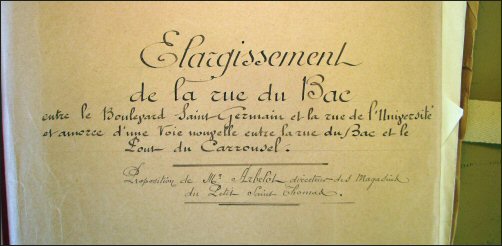 Elargissement
de la rue du Bac
entre le Boulevard Saint Germain et la rue de l'Université
et amorce d'une Voie nouvelle entre la rue du Bac et le
Pont du Carrousel.
Proposition de Mr. Arbelot directeur des Magasins
du Petit Saint Thomas.